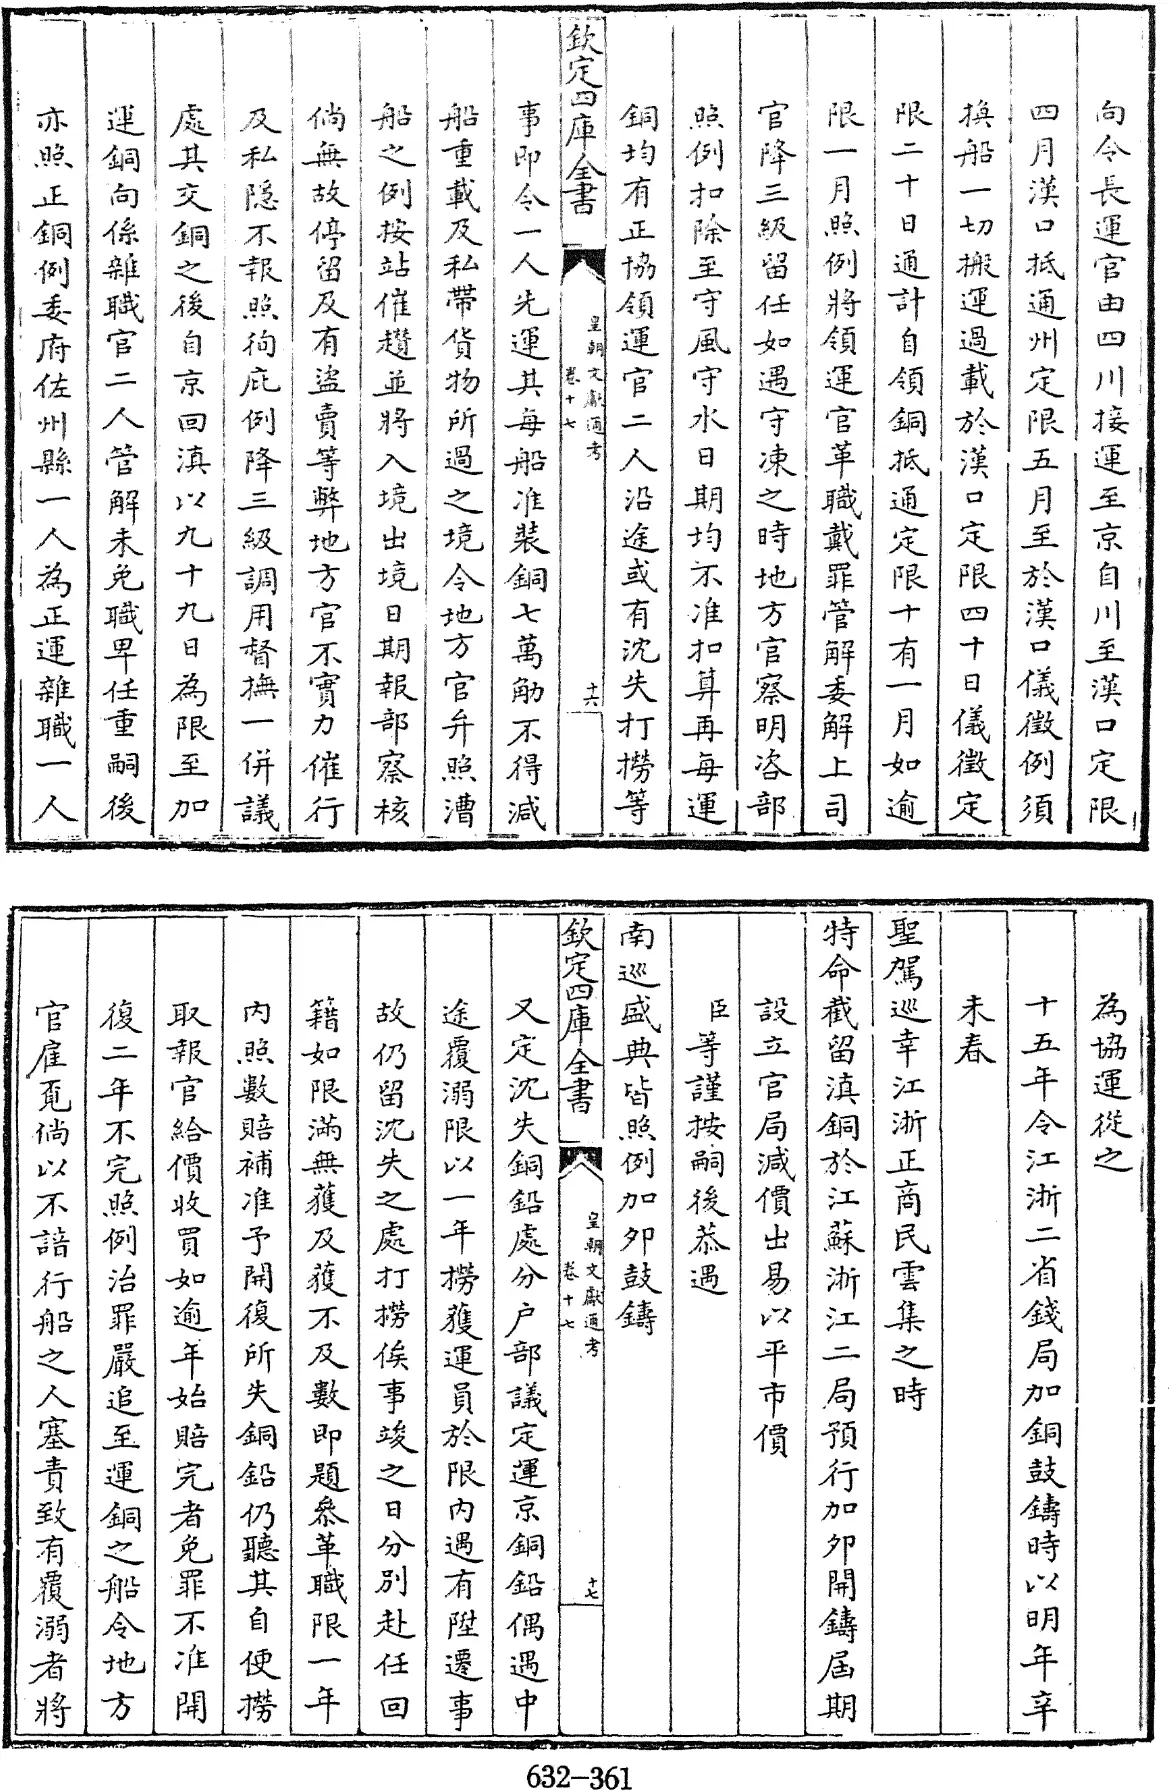 向令長運官由四川接運至京自川至漢口定限
四月漢口抵通州定限五月至於漢口儀徵例須
換船一切搬運過載於漢口定限四十日儀徵定
限二十日通計自領銅抵通定限十有一月如逾
限一月照例將領運官革職戴罪管解委解上司
官降三級留任如遇守凍之時地方官察明咨部
照例扣除至守風守水日期均不准扣算再每運
銅均有正協領運官二人沿途或有沈失打撈等
欽定四庫全書
皇朝文獻通考
卷十七
十六
事即令一人先運其每船准裝銅七萬觔不得減
船重載及私帶貨物所過之境令地方官弁照漕
船之例按站催趲並將入境出境日期報部察核
倘無故停留及有盜賣等弊地方官不實力催行
及私隱不報照徇庇例降三級調用督撫一併議
處其交銅之後自京回滇以九十九日為限至加
運銅向係雜職官二人管解未免職卑任重嗣後
亦照正銅例委府佐州縣一人為正運雜職一人
為協運從之
十五年令江浙二省錢局加銅鼓鑄時以明年辛
未春
聖駕巡幸江浙正商民雲集之時
特命截留滇銅於江蘇浙江二局預行加夘開鑄屆期
設立官局減價出易以平市價
臣等謹按嗣後恭遇
南巡盛典皆照例加夘鼓鑄
欽定四庫全書
皇朝文獻通考
卷十七
十七
又定沈失銅鉛處分户部議定運京銅鉛偶遇中
途覆溺限以一年撈獲運員於限内遇有陞遷事
故仍留沈失之處打撈俟事竣之日分別赴任回
籍如限滿無獲及獲不及數即題叅革職限一年
内照數賠補准予開復所失銅鉛仍聽其自便撈
取報官給價收買如逾年始賠完者免罪不准開
復二年不完照例治罪嚴追至運銅之船令地方
官雇覓倘以不諳行船之人塞責致有覆溺者將
632-361